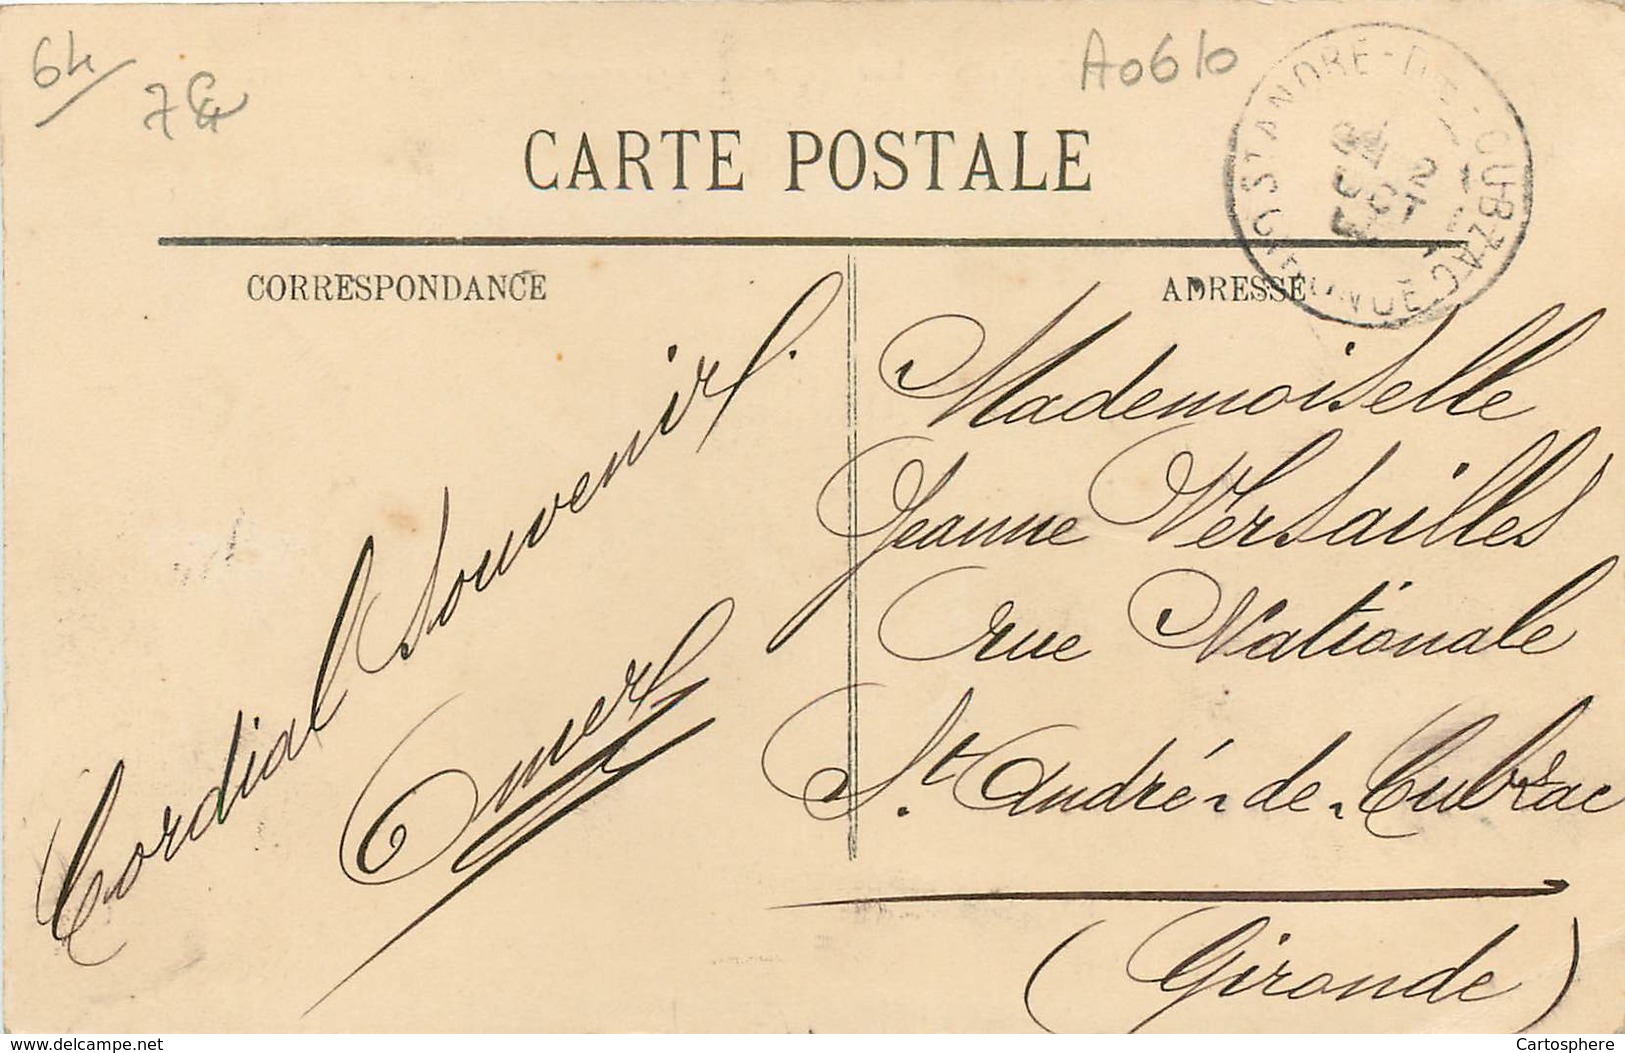 64
7€
A0610
CARTE POSTALE
ST ANDRE-DE-CUBZAC
GIRONDE
2
OCT
CORRESPONDANCE
ADRESSE
Cordial Souvenir.
Omer
Mademoiselle
Jeanne Versailles
rue Nationale
St. André-de-Cubzac
(Gironde)
www.delcampe.net
Cartosphere